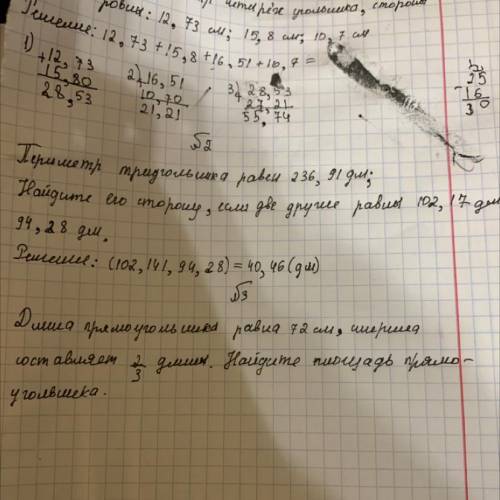 равны: 12,73 см; 15,8 см; 10,7 см
Решение: 12,73+15,8+16,51+10,7=
1) +12,73
15,80
28,53
2) 16,51
10,70
21,21
3) 28,53
27,21
55,74
25
- 16
30
№2
Периметр треугольника равен 236,91 дм;
Найдите его сторону, если две другие равны 102,17 дм
94,28 дм.
Решение: (102,141,94,28)=40,46(дм)
№3
Длина прямоугольника равна 72 см, ширина
составляет 2/3 длины. Найдите площадь прямо-
угольника.